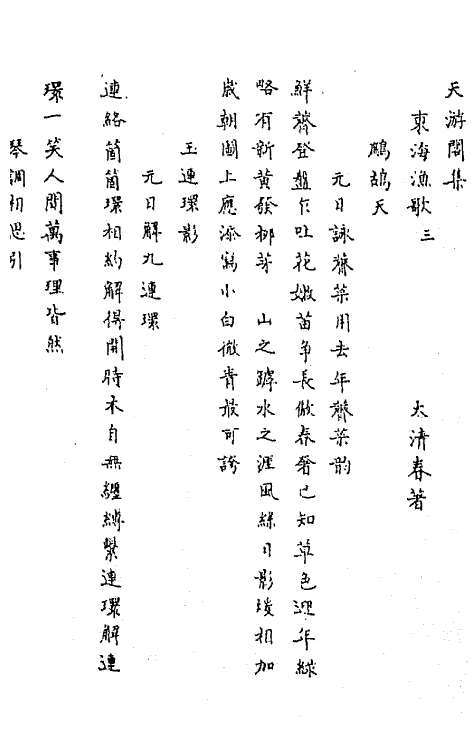 天游閣集
東海漁歌 三
太清春著
鷓鴣天
元日詠薺菜用去年薺菜韵
鮮薺登盤乍吐花嫩苗争長傲春奢已知草色迎年緑
略有新黄發柳芽　山之罅水之涯風絲日影煖相加
歳朝圖上應添寫小白微青最可誇
玉連環影
元日解九連環
連絡箇箇環相約解得開時木自無纏縛繫連環解連
環一笑人間萬事理皆然
琴調相思引